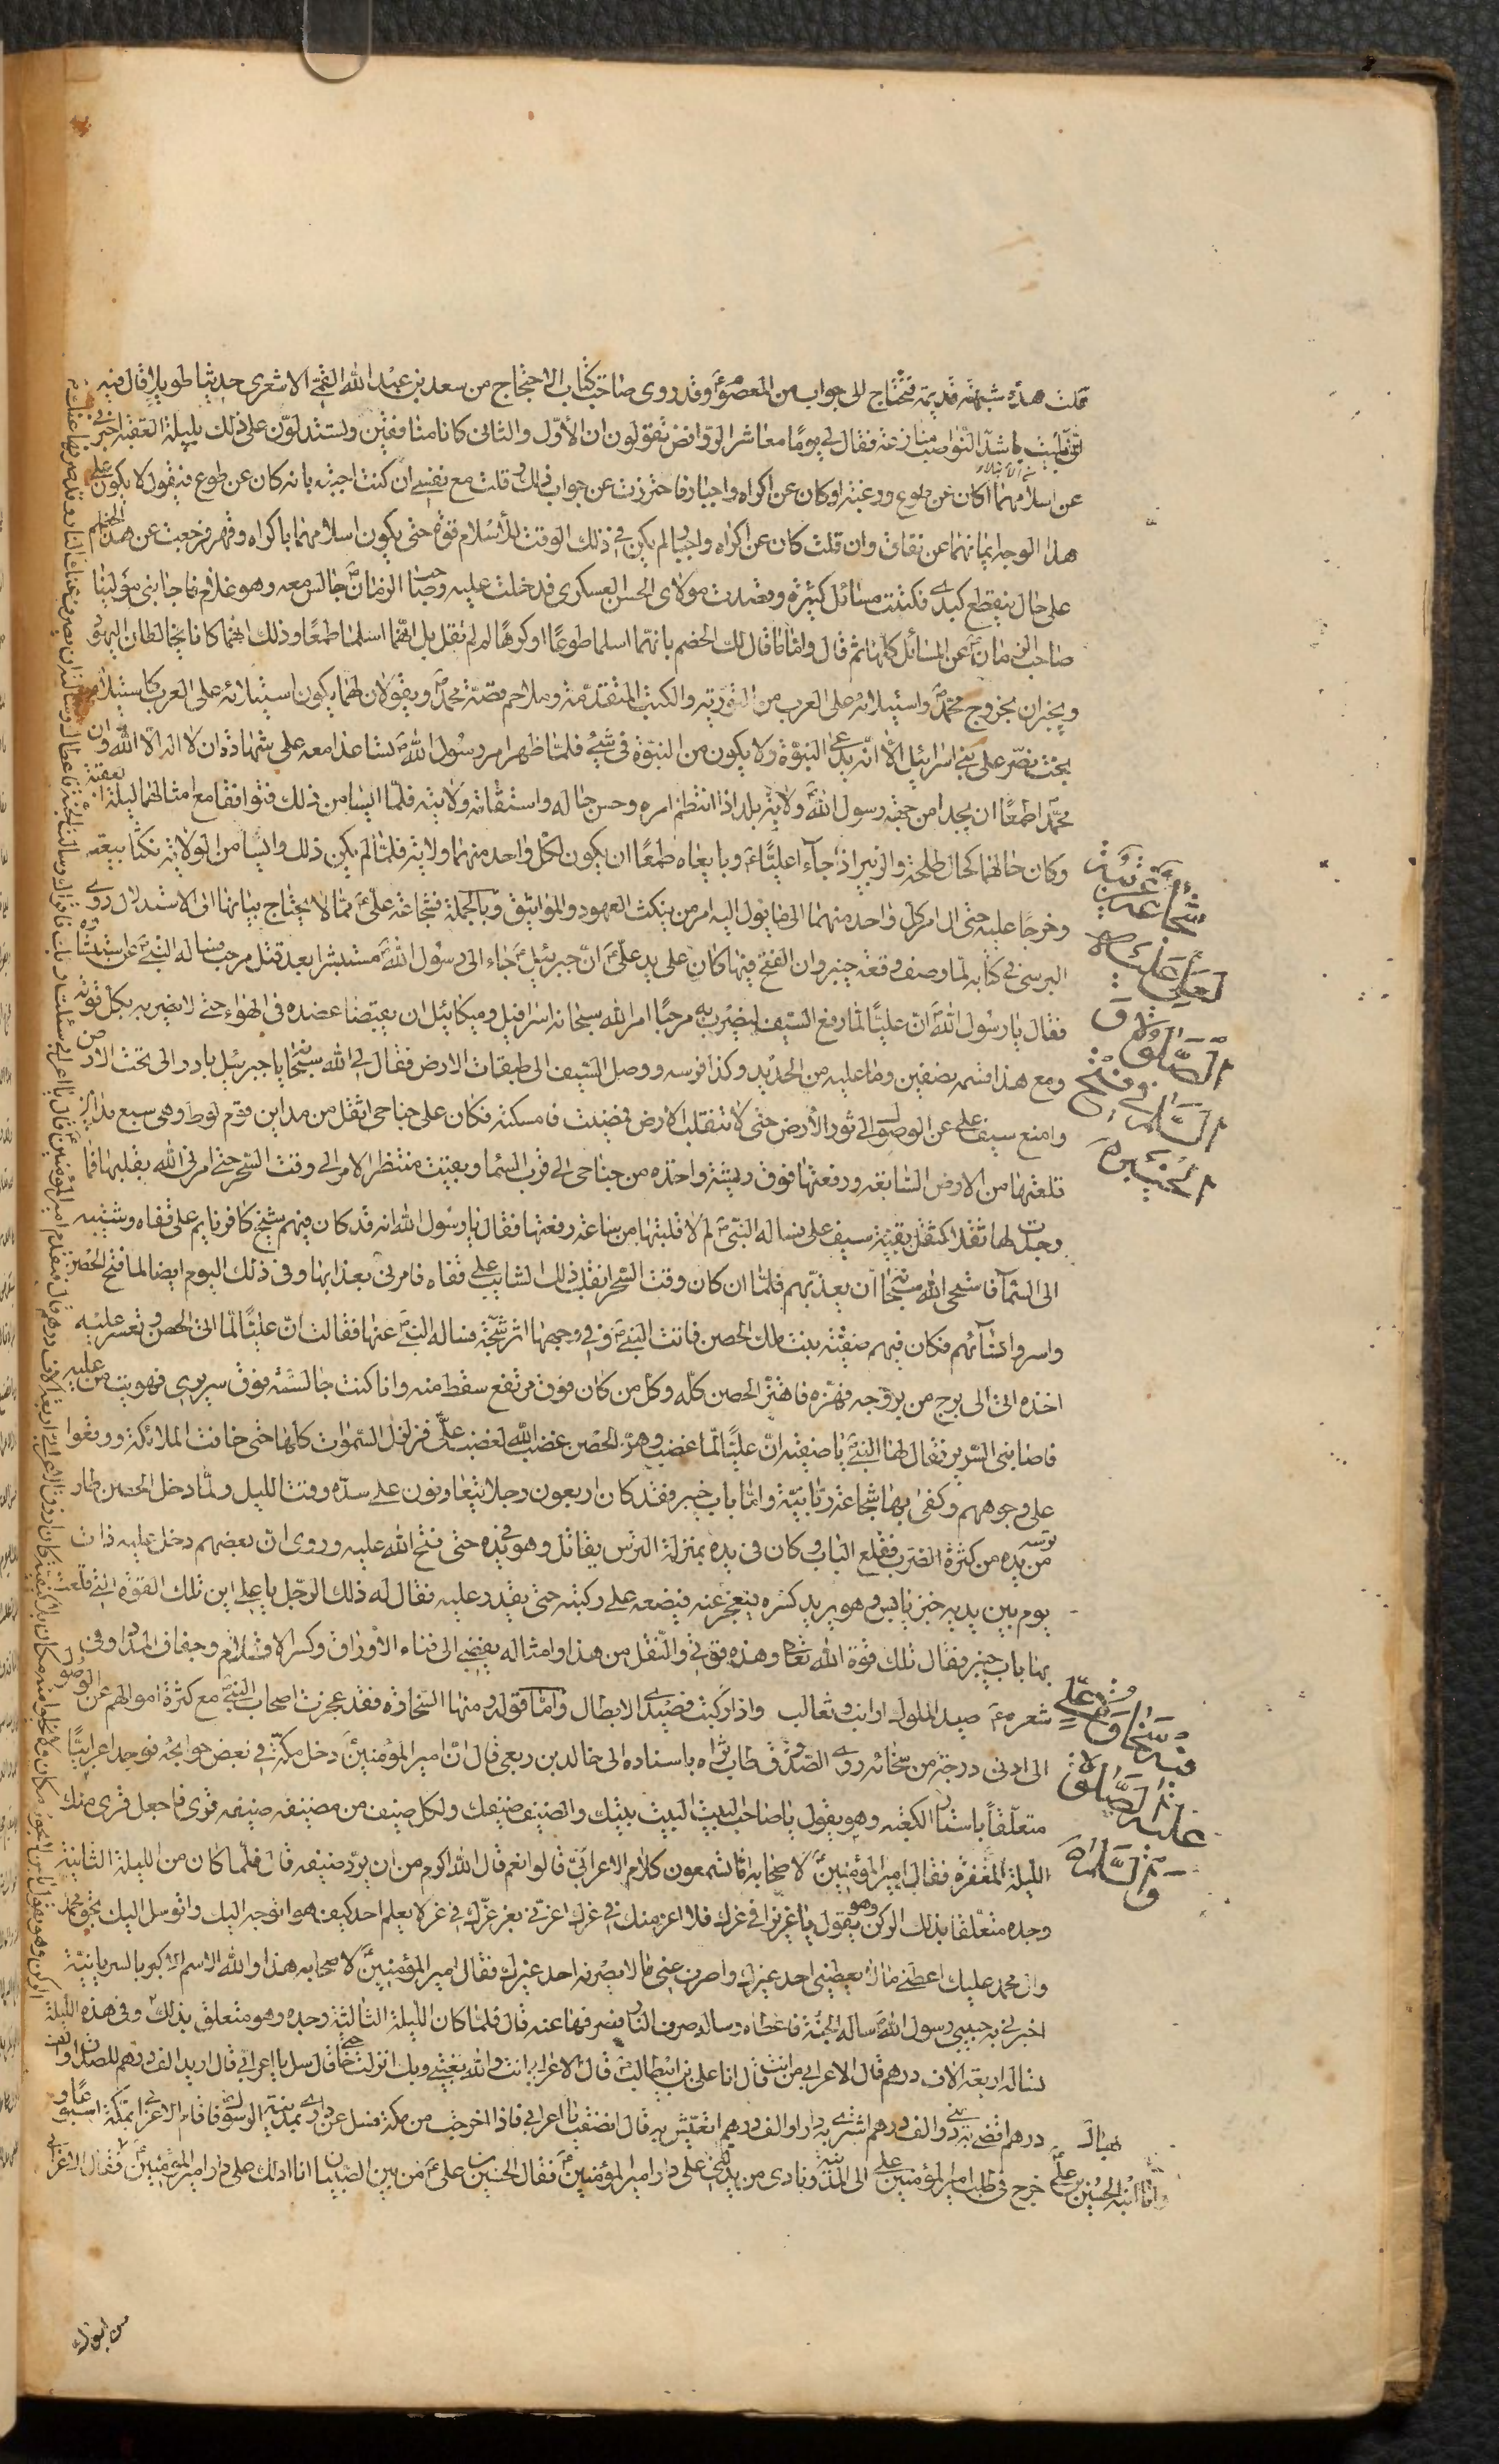 قلت هذه شبهة قديمة تحتاج الى جواب من المعصوم وقد روى صاحب كتاب الاحتجاج من سعد بن عبد الله القمي الاشعرى حديثا طويلا قال فيه
بليت باشد النواصب منازعة فقال لى يوما معاشر الروافض تقولون ان الأول والثانى كانا منافقين وتستدلون على ذلك بليلة العقبة اخبرنى
عن اسلامهما اكان عن طوع ورغبة او كان عن اكراه واجبار فاحترزت عن جواب ذلك وقلت مع نفسى ان كنت اجبته بانه كان عن طوع فيقول لا يكون على
هذا الوجه ايمانهما عن نفاق وان قلت كان عن اكراه واجبار لم يكن فى ذلك الوقت للأسلام قوة حتى يكون اسلامهما باكراه وقهر فرجعت عن هذا الخصم
على حال ينقطع كبدى فكتبت مسائل كثيرة وقصدت مولاى الحسن العسكرى فدخلت عليه وصاحب الزمان جالس معه وهو غلام فاجابنى
صاحب الزمان عن المسائل كلها ثم قال واما ما قال لك الخصم بانهما اسلما طوعا او كرها لم لم تقل بل انهما اسلما طمعا وذلك انهما كانا يخالطان اليهود
ويخبران بخروج محمد واستيلائه على العرب من التورية والكتب المتقدمة وملاحم قصة محمد ويقولان لهما يكون استيلائه على العرب كاستيلاء
بخت نصر على بنى اسرائيل الا انه يدعى النبوة ولا يكون من النبوة فى شىء فلما ظهر امر رسول الله تساعدا معه على شهادة ان لا اله الا الله وان
محمد طمعا ان يجدا من جهة رسول الله ولاية بلد اذا انتظم امره وحسن حاله واستقامت ولايته فلما ايسا من ذلك توافقا مع امثالهما ليلة العقبة
وكان حالهما كحال طلحة والزبير اذ جاآ عليا وبايعاه طمعا ان يكون لكل واحد منهما ولاية فلما لم يكن ذلك وايسا من الولاية نكثا بيعته
وخرجا عليه حتى ال امر كل واحد منهما الى ما يؤل اليه امر من ينكث العهود والمواثيق وبالجملة فشجاعة على مما لا يحتاج بيانها الى الاستدلال روى
البرسى فى كتابه لما وصف وقعة خيبر وان الفتح فيها كان على يد على ان جبرئيل جاء الى رسول الله مستبشرا بعد قتل مرحب فساله النبى عن استبشاره
فقال يا رسول الله ان عليا لما رفع السيف ليضرب به مرحبا امر الله سبحانه اسرافيل وميكائيل ان يقبضا عضده فى الهواء حتى لا يضرب بكل قوته
ومع هذا قسمه نصفين وما عليه من الحديد وكذا فرسه ووصل السيف الى طبقات الارض فقال لى الله سبحانه يا جبرئيل بادر الى تحت الارض
وامنع سيف على عن الوصول الى ثور الأرض حتى لا تنقلب الارض فمضيت فامسكته فكان على جناحى اثقل من مداين قوم لوط وهى سبع مداين
قلعتها من الارض السابعة ورفعتها فوق ريشة واحدة من جناحى الى قرب السماء وبقيت منتظر الامر الى وقت السحر حتى امرنى الله بقلبها فما
وجدت لها ثقلا كثقل سيف على فساله النبى لم لا قلبتها من ساعة رفعتها فقال يا رسول الله انه قد كان فيهم شيخ كافر نايم على قفاه وشيبته
الى السماء فاستحى الله سبحانه ان يعذبهم فلما ان كان وقت السحر انقلب ذلك الشايب على قفاه فامرنى بعذابها وفى ذلك اليوم ايضا لما فتح الحصن
واسروا نساءهم فكان فيهم صفية بنت ملك الحصن فاتت النبى وفى وجهها اثر شجة فسالها النبى عنها فقالت ان عليا لما اتى الحصن وتعسر عليه
اخذه اتى الى برج من بروجه فهزه فاهتز الحصن كله وكل من كان فوق مرتفع سقط منه وانا كنت جالسة فوق سريرى فهويت من عليه
فاصابنى السرير فقال لها النبى يا صفية ان عليا لما غضب وهز الحصن غضب الله لغضب على فزلزل السموات كلها حتى خافت الملائكة ووقعوا
على وجوههم وكفى بها شجاعة ربانية واما باب خيبر فقد كان اربعون رجلا يتعاونون على سده وقت الليل ولما دخل الحصن طار
ترسه من يده من كثرة الضرب فقلع الباب وكان فى يده بمنزلة الترس يقاتل وهو فى يده حتى فتح الله عليه وروى ان بعضهم دخل عليه ذات
يوم بين يديه خبز يابس وهو يريد كسره فيعجز عنه فيضعه على ركبته حتى يقدر عليه فقال له ذلك الرجل يا على اين تلك القوة التى قلعت
بها باب خيبر فقال تلك قوة الله تعالى وهذه قوتى والنقل من هذا وامثاله يفضى الى فناء الأوراق وكسر الاقلام وجفاف المداد وفى
شعره صيد الملوك ارانب وثعالب واذا ركبت فصيدى الابطال واما قوله ومنها السخاوة فقد عجزت اصحاب النبى مع كثرة اموالهم عن الوصول
الى ادنى درجة من سخائه روى الصدوق طاب ثراه باسناده الى خالد بن ربعى قال ان امير المؤمنين دخل مكة فى بعض حوائجه فوجد اعرابيا
متعلقا باستار الكعبة وهو يقول يا صاحب البيت البيت بيتك والضيف ضيفك ولكل ضيف من مضيفه قرى فاجعل قرى منك
الليلة المغفرة فقال امير المؤمنين لاصحابه اما تسمعون كلام الاعرابى قالوا نعم قال الله اكرم من ان يرد ضيفه قال فلما كان من الليلة الثانية
وجده متعلقا بذلك الركن وهو يقول يا عزيزا فى عزك فلا اعز منك فى عزك اعزنى بعز عزك فى عز لا يعلم احد كيف هو اتوجه اليك واتوسل اليك بحق محمد
وال محمد عليك اعطنى ما لا يعطينى احد غيرك واصرف عنى ما لا يصرفه احد غيرك فقال امير المؤمنين لاصحابه هذا والله الاسم الاكبر بالسريانية
اخبرنى به حبيبى رسول الله ساله الجنة فاعطاه وساله صرف النار فصرفها عنه قال فلما كان الليلة الثالثة وجده وهو متعلق بذلك وفى هذه الليلة
ساله اربعة الاف درهم قال الاعرابى من انت قال انا على بن ابيطالب قال الاعرابى انت والله بغيتى وبك انزلت حاجتى قال سل يا اعرابى قال اريد الف درهم للصداق والف
درهم اقضى به دينى والف درهم اشترى به دارا والف درهم اتعيش به قال انصفت يا اعرابى فاذا خرجت من مكة فسل عن دارى بمدينة الرسول فاقام الاعرابى بمكة اسبوعا و
خرج فى طلب امير المؤمنين على الى المدينة ونادى من يدلنى على دار امير المؤمنين فقال الحسين بن على من بين الصبيان انا ادلك على دار امير المؤمنين فقال الاعرابى
وانا ابنه الحسين بن على
شجاعته
لعلى عليه
الصلوة و
السلام فى فتح
الخيبر
فيه سخاوة على
عليه الصلوة
والسلام
من ابوك